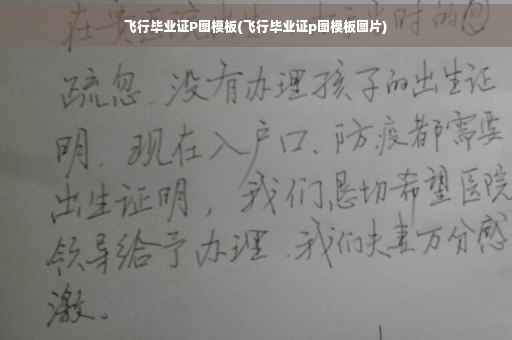 飞行毕业证P图模板(飞行毕业证p图模板图片)
疏忽、没有办理孩子的出生证
明、现在入户口、防疫都需要
出生证明，我们恳切希望医院
领导给予办理、我们夫妻万分感
激。